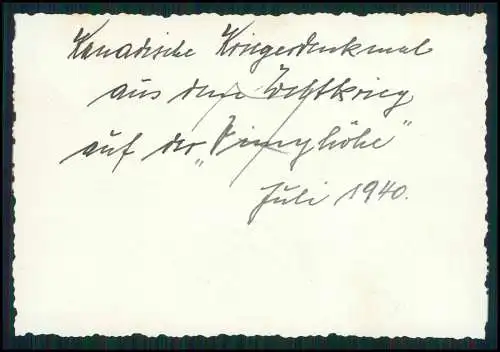 Kanadische Kriegerdenkmal
aus dem Weltkrieg
auf der „Vimyhöhe"
Juli 1940.